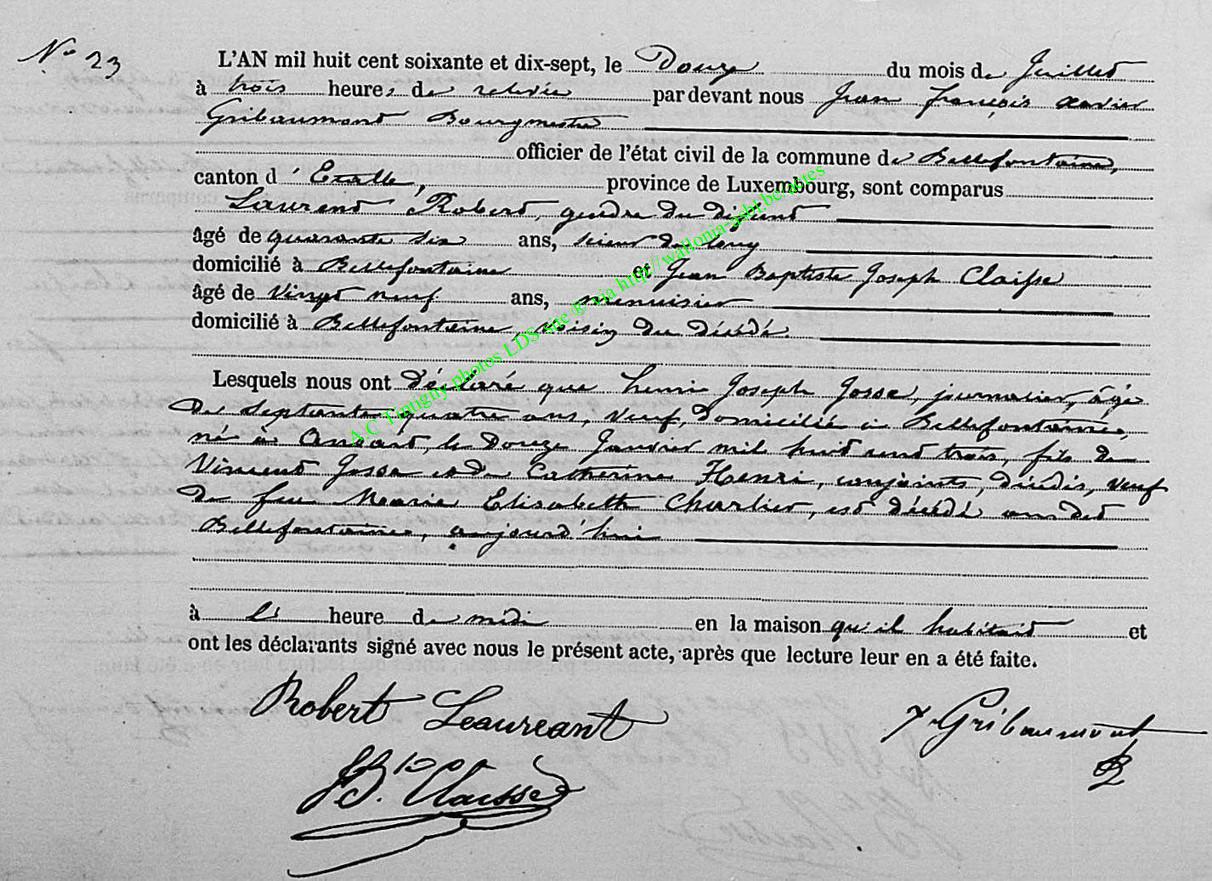 No 23
L'AN mil huit cent soixante et dix-sept, le Douze du mois de Juillet
à trois heures de relevée par devant nous Jean François Xavier
Gribaumont Bourgmestre
officier de l'état civil de la commune de Bellefontaine,
canton d'Etalle, province de Luxembourg, sont comparus
Laurent Robert, gendre du défunt
âgé de quarante six ans, scieur de long
domicilié à Bellefontaine et Jean Baptiste Joseph Claisse
âgé de vingt neuf ans, menuisier
domicilié à Bellefontaine, voisin du décédé.
Lesquels nous ont déclaré que henri Joseph Josse, journalier, âgé
de septante quatre ans, veuf, domicilié à Bellefontaine,
né à le Douze Janvier mil huit cent trois, fils de
Vincent Josse et de Catherine Henri, conjoints, décédés, veuf
de feu Marie Elisabeth Charlier, est décédé au dit
Bellefontaine, aujourd'hui
à heure de midi en la maison qu'il habitait et
ont les déclarants signé avec nous le présent acte, après que lecture leur en a été faite.
Robert Leaureant
Gribaumont
JBte Claisse
A.C Tintigny photos LDS site g via http://wallonia-asbl.be/actes